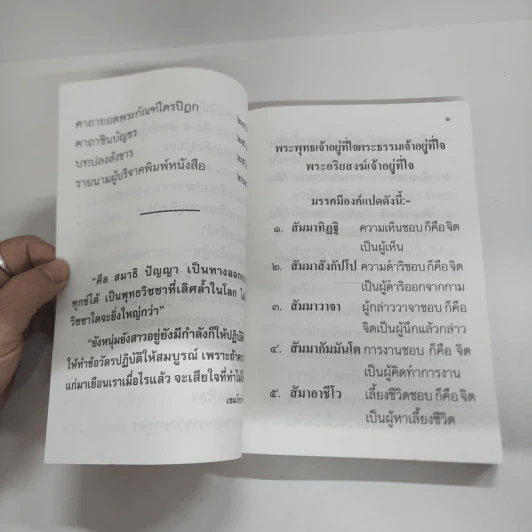 คาถายอดพระกัณฑ์ไตรปิฎก
คาถาชินบัญชร
บทปลงสังขาร
รายนามผู้บริจาคพิมพ์หนังสือ
“ศีล สมาธิ ปัญญา เป็นทางออกจาก
ทุกข์ได้ เป็นพุทธวิชชาที่เลิศล้ำในโลก
วิชชาใดจะยิ่งใหญ่กว่า”
“ยังหนุ่มยังสาวอยู่ยังมีกำลังก็ให้ปฏิบัติ
ให้ทำข้อวัตรปฏิบัติให้สมบูรณ์ เพราะถ้า
แก่มาเยือนเราเมื่อไรแล้ว จะเสียใจที่ทำ
๑
พระพุทธเจ้าอยู่ที่ใจพระธรรมเจ้าอยู่ที่ใจ
พระอริยสงฆ์เจ้าอยู่ที่ใจ
มรรคมีองค์แปดดังนี้:-
๑. สัมมาทิฏฐิ ความเห็นชอบ ก็คือจิต
เป็นผู้เห็น
๒. สัมมาสังกัปโป ความดำริชอบ ก็คือจิต
เป็นผู้ดำริออกจากกาม
๓. สัมมาวาจา ผู้กล่าววาจาชอบ ก็คือ
จิตเป็นผู้นึกแล้วกล่าว
๔. สัมมากัมมันโต การงานชอบ ก็คือ จิต
เป็นผู้คิดทำการงาน
๕. สัมาอาชีโว เลี้ยงชีวิตชอบ ก็คือ จิต
เป็นผู้หาเลี้ยงชีวิต